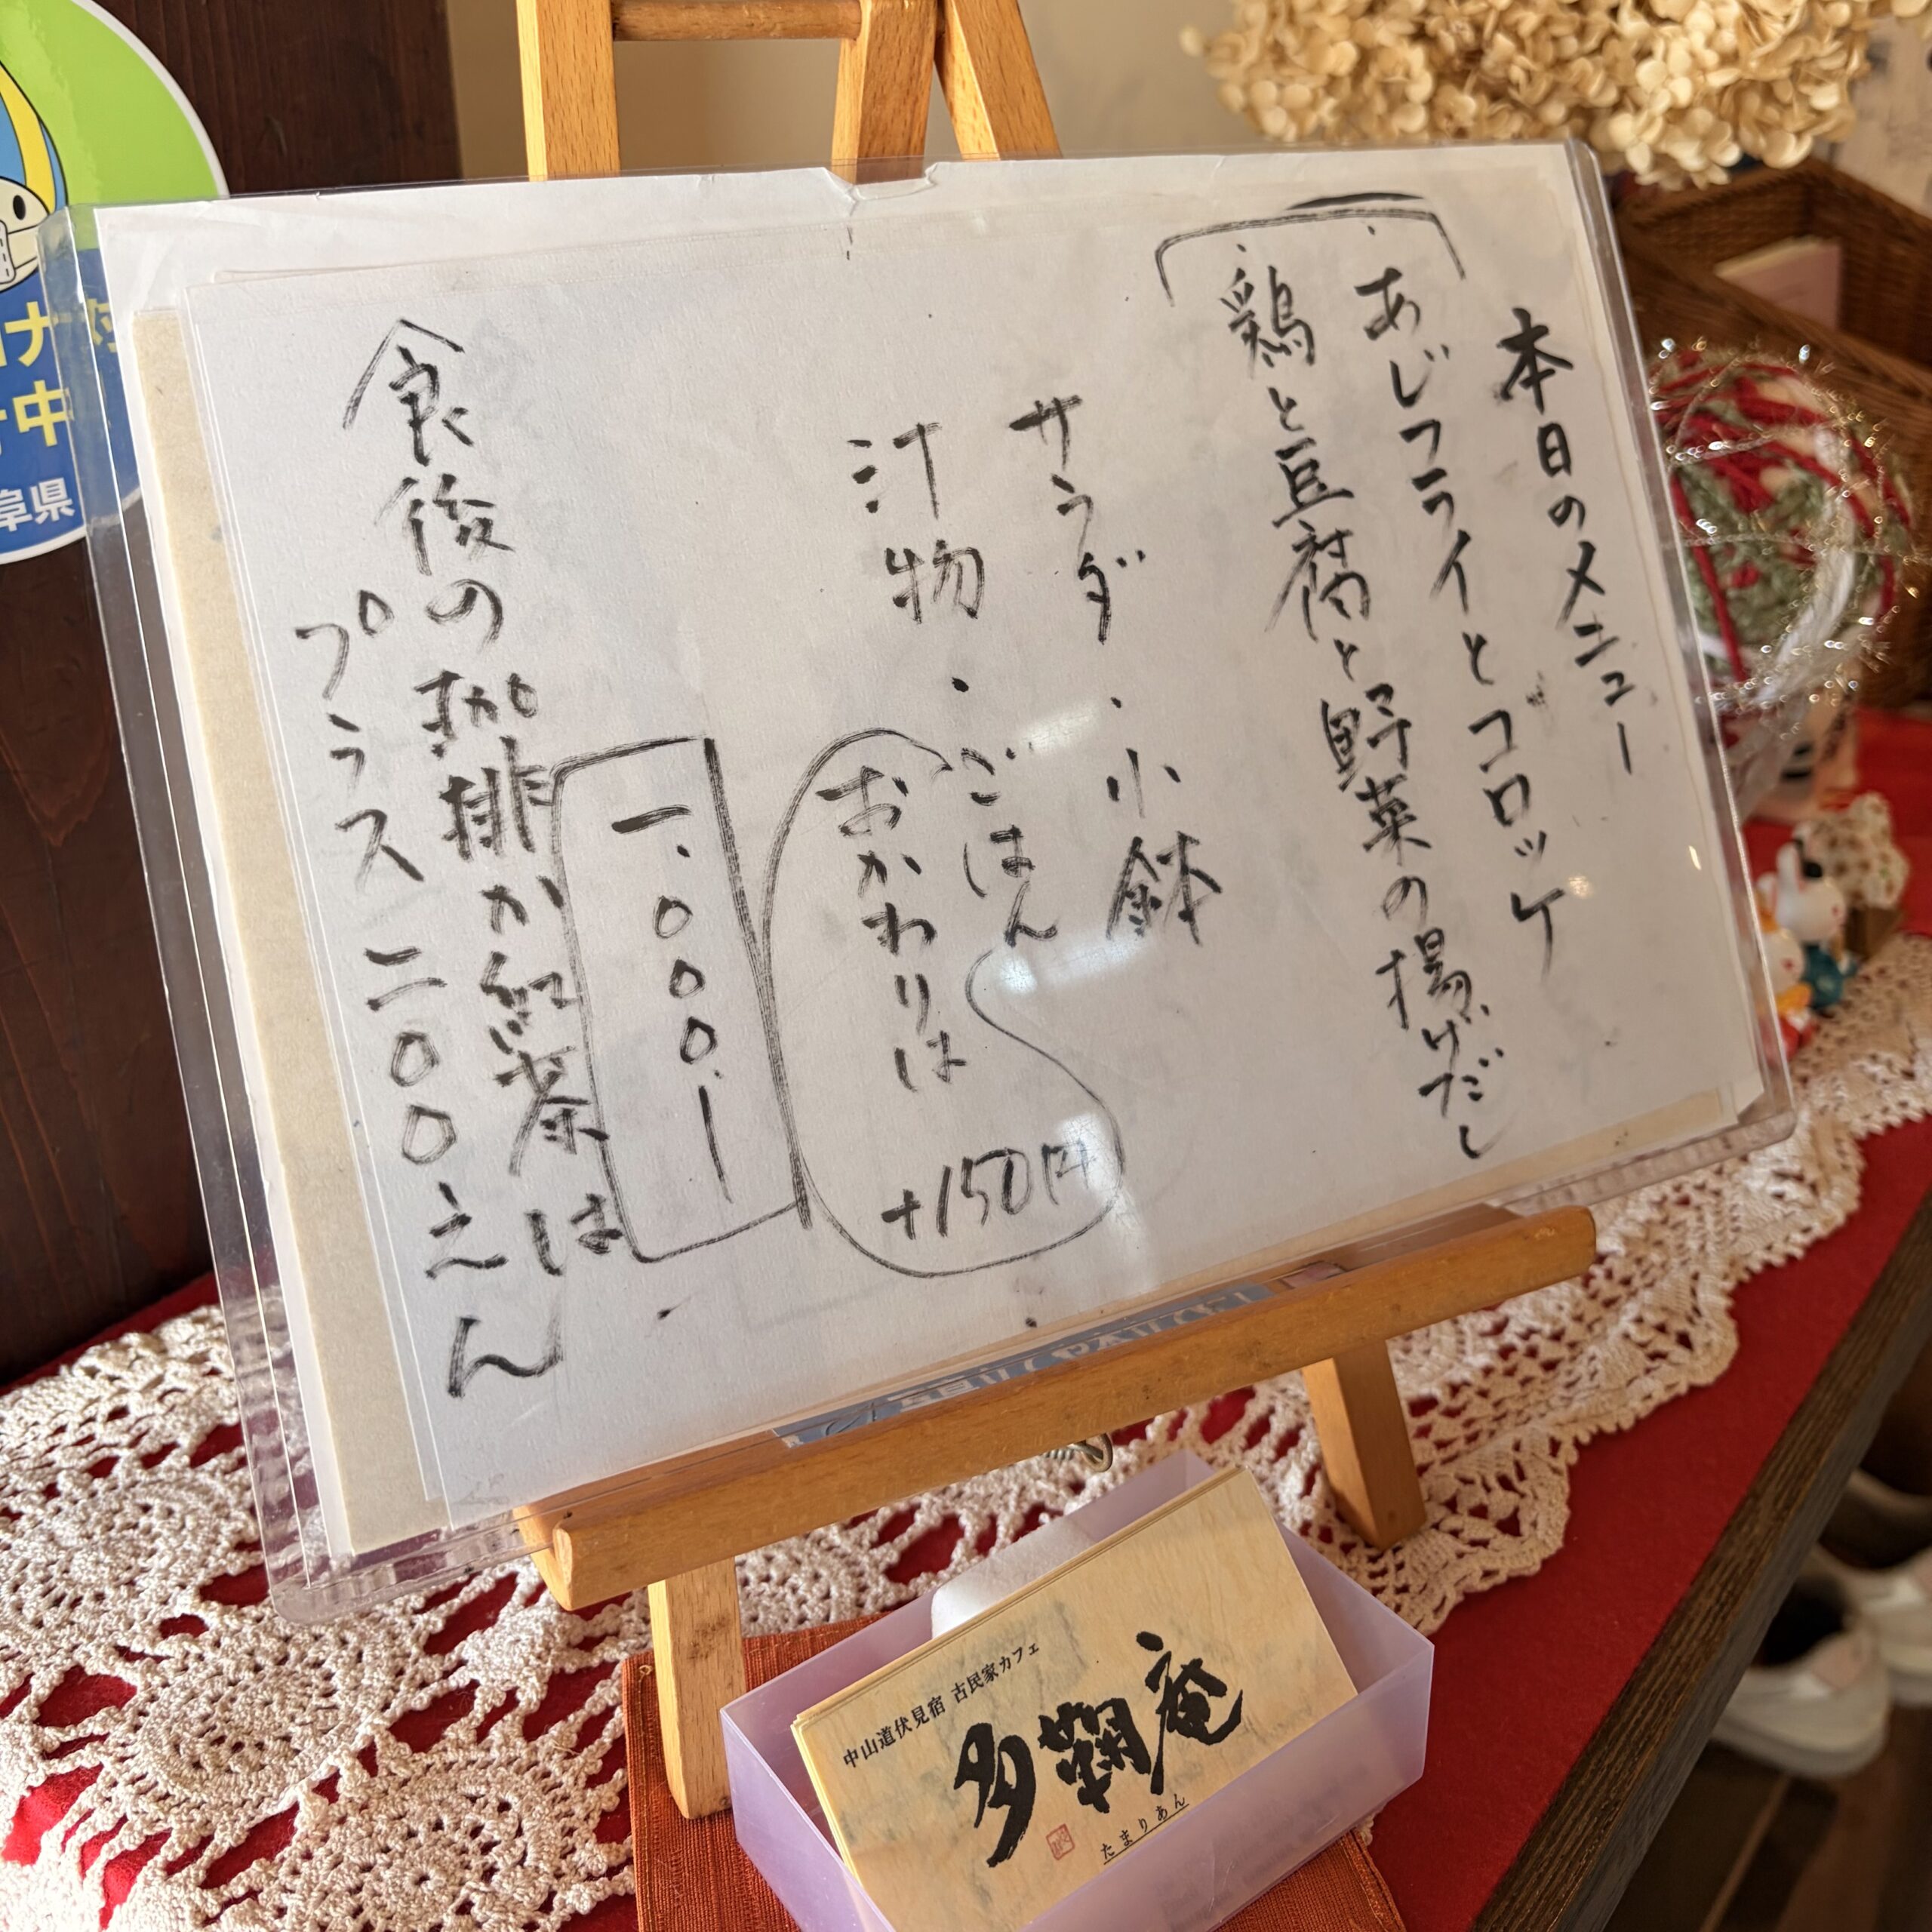 本日のメニュー
・あじフライとコロッケ
・鶏と豆腐と野菜の揚げだし
サラダ・小鉢
汁物・ごはん
おかわりは
+150円
一、〇〇〇、ー
食後の珈琲か紅茶は
プラス二〇〇えん
中山道伏見宿 古民家カフェ
多鞠庵
たまりあん
中
阜県